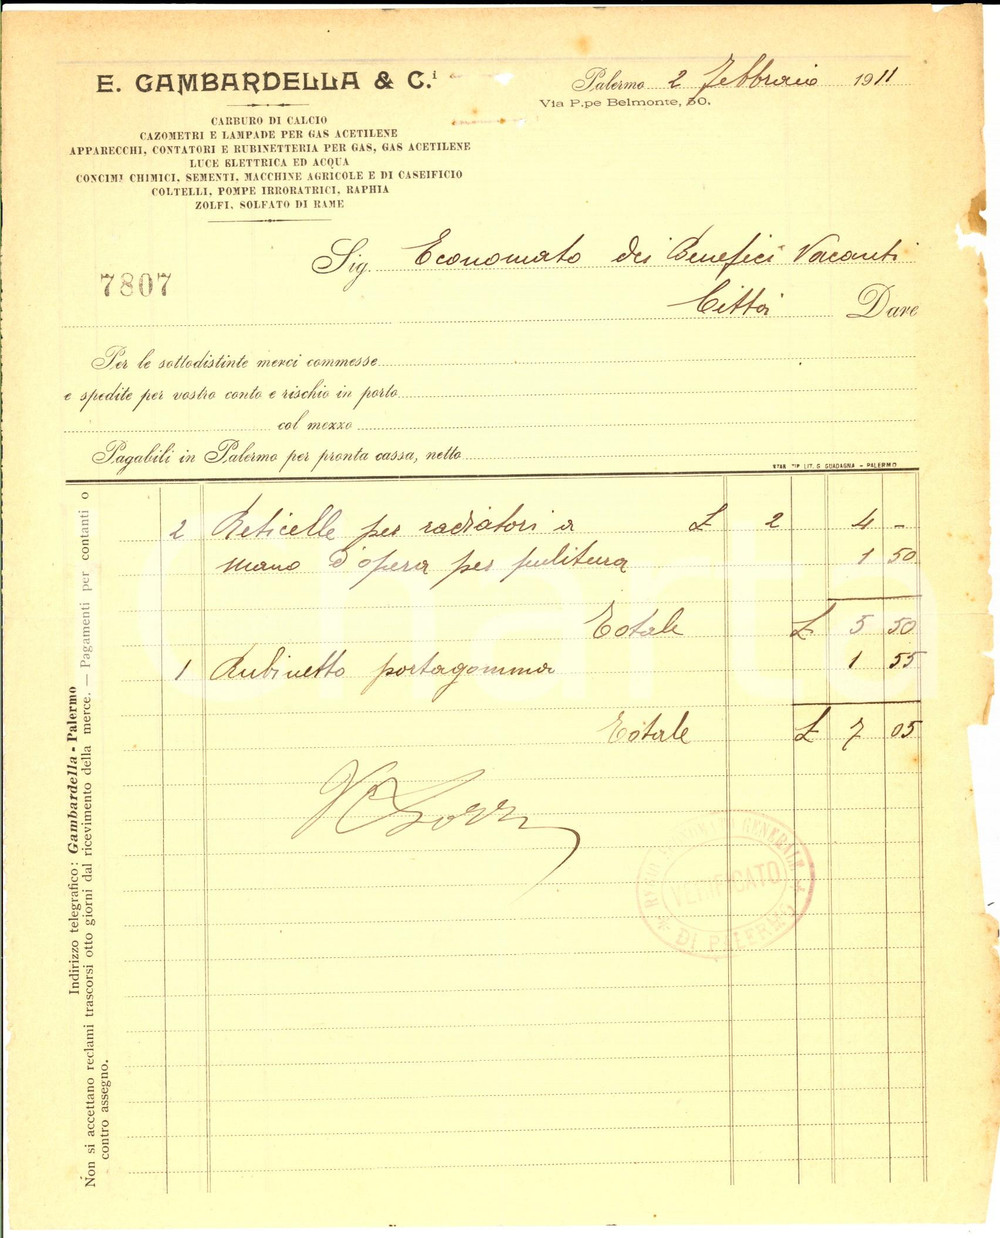 E. GAMBARDELLA & C.i
CARBURO DI CALCIO
CAZOMETRI E LAMPADE PER GAS ACETILENE
APPARECCHI, CONTATORI E RUBINETTERIA PER GAS, GAS ACETILENE
LUCE ELETTRICA ED ACQUA
CONCIMI CHIMICI, SEMENTI, MACCHINE AGRICOLE E DI CASEIFICIO
COLTELLI, POMPE IRRORATRICI, RAPHIA
ZOLFI, SOLFATO DI RAME
Palermo 2 Febbraio 1911
Via P.pe Belmonte, 50.
7807
Sig. Economato dei Benefici Vacanti
Città Dare
Per le sottodistinte merci commesse
e spedite per vostro conto e rischio in porto
col mezzo
Pagabili in Palermo per pronta cassa, netto
STAB. TIP. LIT. G. GUADAGNA - PALERMO
2 Reticelle per radiatori a £ 2 4 -
mano d'opera per pulitura 1 50
Totale £ 5 50
1 Rubinetto portagomma 1 55
Totale £ 7 05
REGIO ECONOMATO GENERALE
VERIFICATO
DI PALERMO
Indirizzo telegrafico: Gambardella - Palermo
Non si accettano reclami trascorsi otto giorni dal ricevimento della merce. — Pagamenti per contanti o
contro assegno.
Charta